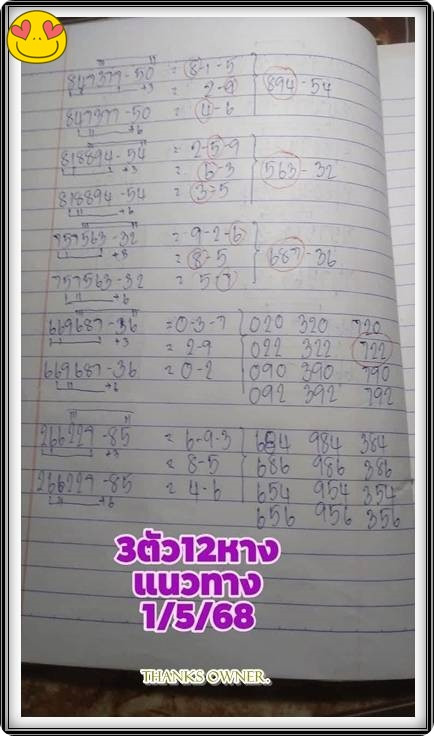 847377-50 = 8-1-5
+3 = 2-9 894-54
847377-50 = 4-6
+6
818894-54 = 2-5-9
+3 = 6-3 563-32
818894-54 = 3-5
+6
757563-32 = 9-2-6
+3 = 8-5 687-36
757563-32 = 5-7
+6
669687-36 = 0-3-7 020 320 720
+3 = 2-9 022 322 722
669687-36 = 0-2 090 390 790
+6 092 392 792
266227-85 = 6-9-3 684 984 384
+3 = 8-5 686 986 386
266227-85 = 4-6 654 954 354
+6 656 956 356
3ตัว12หาง
แนวทาง
1/5/68
THANKS OWNER.